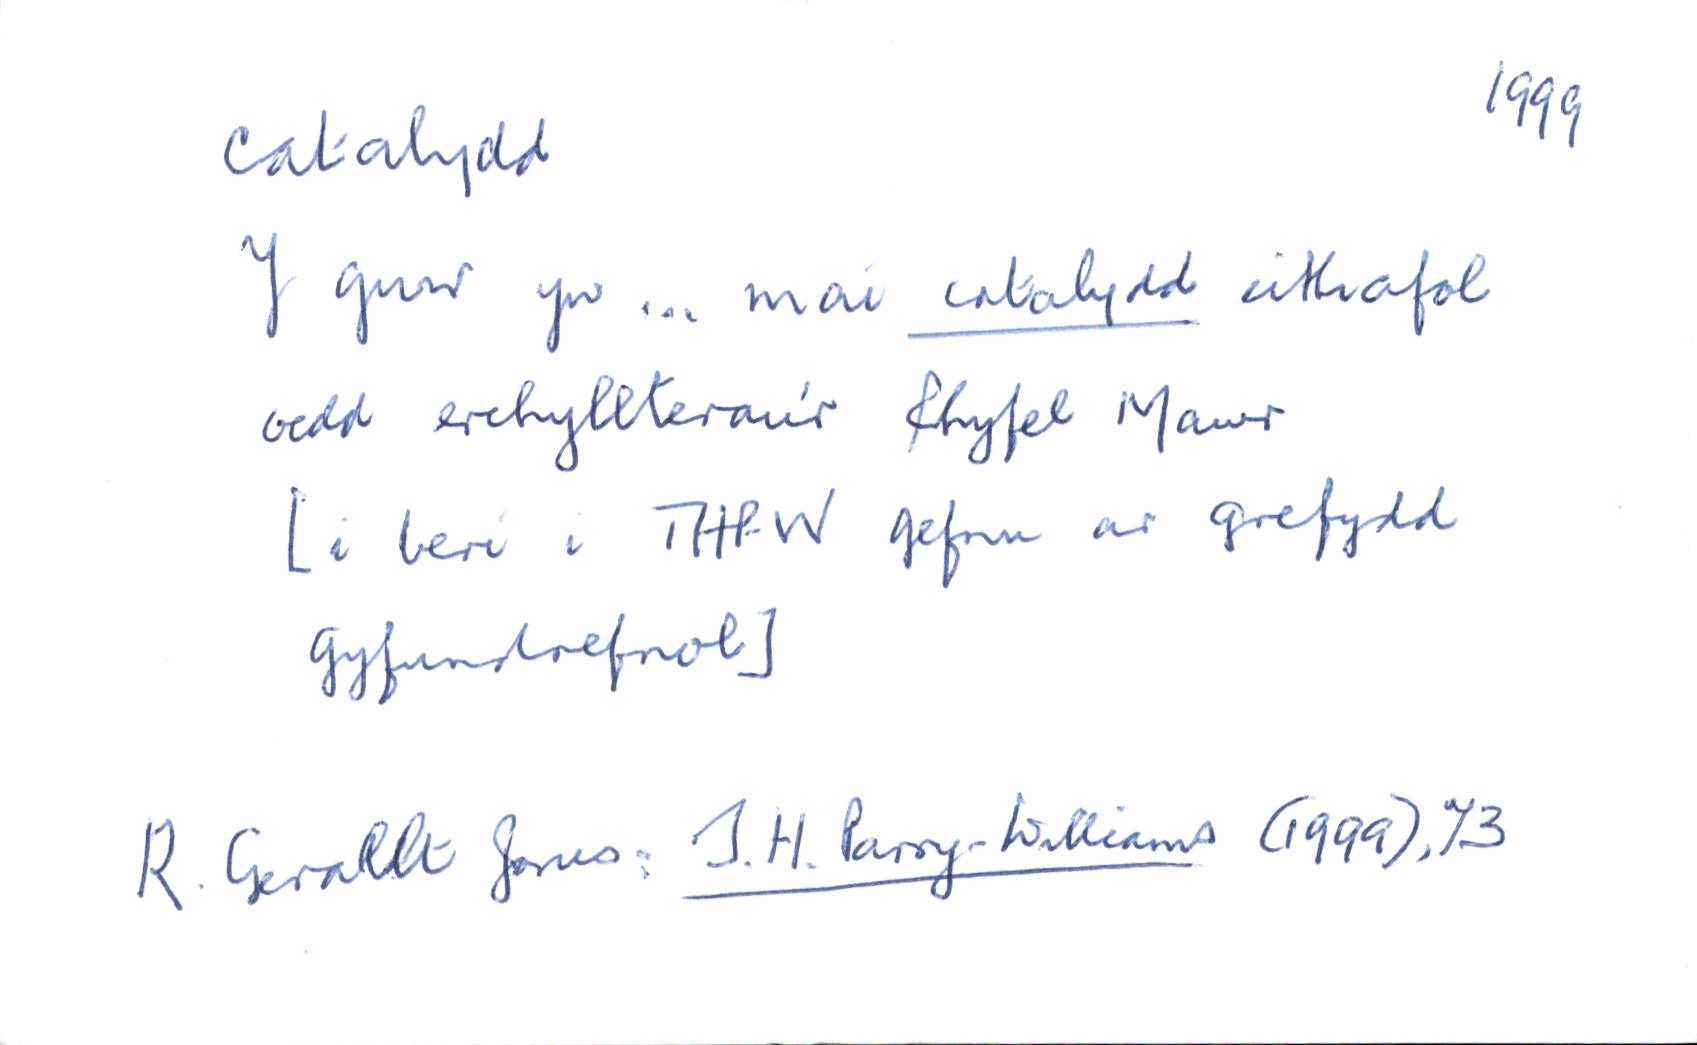 1999
catalydd
Y gwir yw ... mai catalydd eithafol
oedd erchyllterau'r Rhyfel Mawr
[i beri i THP-W gefnu ar grefydd
gyfundrefnol]
R. Gerallt Jones: T.H. Parry-Williams (1999), 73